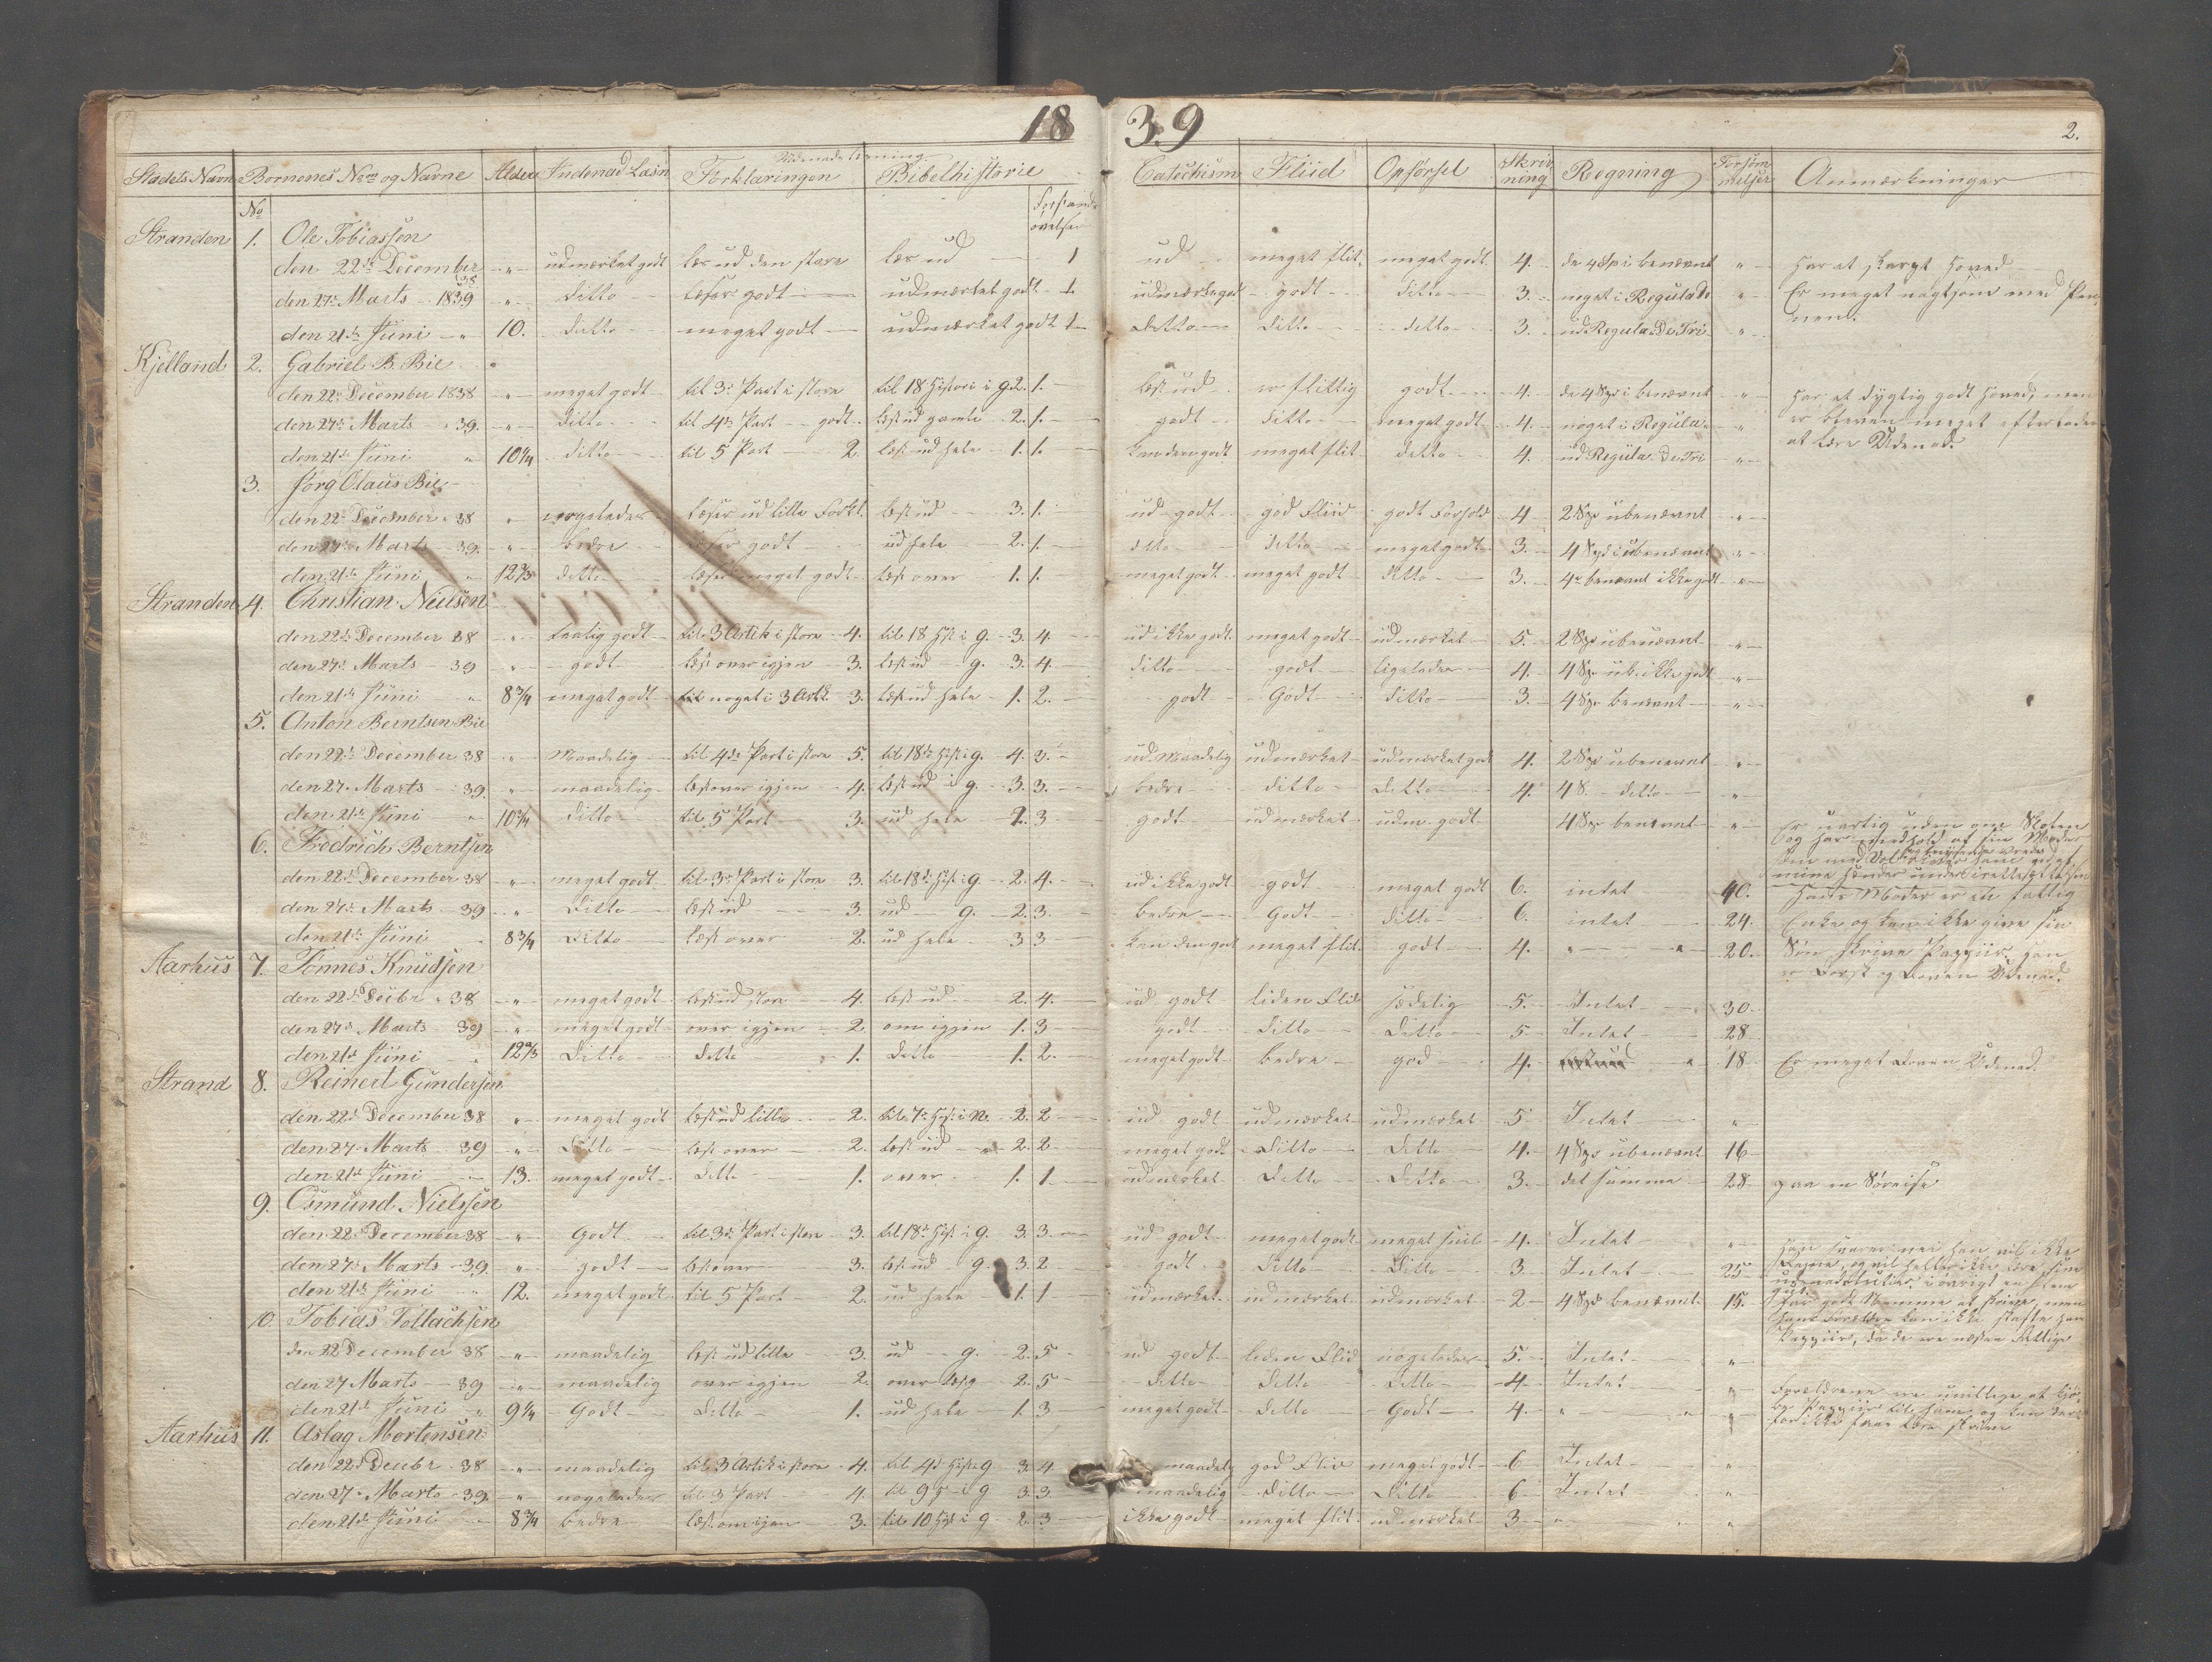 18 39
2.
Udenadslæsning.
Stadets Navn Børnenes No og Navne Alder Indenad Læsn Forklaringen Bibelhistorie Forstands øvelser Catechism Fliid Opførsel Skriv ning Regning Forsøm melser Anmærkninger
No
Stranden 1. Ole Tobiassen
den 22de December 38 " udmærket godt læs ud den store læs ud 1 ud meget flit. meget godt 4. de 4 Sp i benævnt " Har et skarpt Hoved
den 27de Marts 1839 " ditto læser godt udmærket godt 1 udmærket godt godt ditto 3. noget i Regula de " Er meget nøgtsom med Pen
den 21de Juni " 10. ditto meget godt udmærket godt 1 ditto ditto ditto 3. ud Regula De Tri " nend.
Kjelland 2. Gabriel B. Bie
den 22de December 1838 " meget godt til 3de Part i store til 18 Histori i g 2. 1. læst ud er flittig godt 4. de 4 Spe i benævnt " Har et dygtig godt Hoved, men
den 27de Marts 39. " ditto til 4de Part godt læst ud gamle 2. 1. godt ditto meget godt 4. noget i Regula " er bleven meget efterladen
den 21de Juni " 10¼ ditto til 5 Part 2. læst ud hele 1. 1. kan den godt meget flit ditto 4. ud Regula De Tri " at lære Udenad.
3. Jørg Olaus Bie
den 22de December 38 " nogeledes læser ud lille Forkl. læst ud 3. 1. ud godt god Fliid godt Forhold 4 2 Spe ubenævnt "
den 27de Marts 39. " bedre læser godt ud hele 2. 1. ditto ditto meget godt 3. 4 Spd i ubenævnt "
den 21de Juni " 12⅔ ditto læser meget godt læst over 1. 1. meget godt meget godt ditto 3. 4de benævnt ikke godt "
Stranden 4. Christian Nielsen
den 22de December 38 " taalig godt til 3 Artik i store 4. til 18 Hist i g. 3. 4. ud ikke godt. meget godt udmærket 5. 2 Spe ubenævnt "
den 27de Marts 39 " godt læst over igjen 3. læst ud g. 3. 4. ditto godt ligeledes 4. 4 Spe ub. ikke godt "
den 21de Juni " 8¾ meget godt til noget i 3 Artk. 3. læst ud hele 1. 2. godt Godt ditto 3. 4 Spe benævnt "
5. Anton Berntsen Bie
den 22de December 38 " Maadelig til 4de Part i store 5. til 18de Hist i g. 4. 3. ud Maadelig udmærket udmærket godt 4. 2 Spe ubenævnt "
den 27. Marts 39. " maadelig læst over igjen 4. læst ud i g. 3. 3. bedre ditto ditto 4. 4 S. ditto "
den 21de Juni " 10¾ ditto til 5 Part 3. ud hele 2. 3 godt udmærket udm. godt 4 Spe benævnt "
6. Fredrich Berntsen
den 22de December 38 " meget godt til 3de Part i store 3. til 18de Hist i g. 2. 4. ud ikke godt godt meget godt 6. intet 40. Hans Moder er en fattig
den 27de Marts 39 " Ditto læst ud 3. ud g. 2. 3. bedre Godt ditto 6. intet 24. Enke og kan ikke give sin
den 21de Juni " 8¾ Ditto læst over 2. ud hele 3 3 kan den godt meget flit. godt 4. " " 20. Søn skrive Pappiir. Han
Aarhus 7. Tønnes Knudsen
den 22de Decbr 38 " meget godt læst ud store 4. læst ud 2. 4. ud godt liden Flid sædelig 5. Intet 30.
den 27de Marts 39 " meget godt over igjen 2. om igjen 1. 3 godt Ditto Ditto 5 Intet 28
den 21de Juni " 12⅔ Ditto ditto 1. Ditto 1. 2. meget godt bedre god 4. " 18 Er meget Doven Udenad.
Strand 8. Reinert Gundersen
den 22de December 38 " meget godt læst ud lille 2. til 7de Hist i N. 2. 2 ud godt udmærket udmærket 5 Intet "
den 27 Marts 39 " Ditto læst over 2. læst ud 2. 2 meget godt Ditto Ditto 4. 4 Spe ubenævnt 16
den 21de Juni " 13. meget godt Ditto 1. over 1. 1. udmærket Ditto Ditto 3. det samme 28 paa en Søreise
9. Osmund Nielssen
den 22de December 38 " Godt til 3de Part i store 3. til 18de Hist i g. 3. 3. ud godt meget godt meget 4. Intet "
den 27de Marts 39. " godt læst over 3. læst ud g. 3. 2 godt Ditto Ditto 3. Intet 25
den 21de Juni " 12. meget godt til 5 Part 2. ud hele 1. 1 udmærket. udmærket. udmærket 2 4 Spe benævnt 15.
10. Tobias Tollachsen
den 22 December 38 " maadelig læst ud lille 3. ud g. 2. 5 ud godt liden Flid nogeledes 5. Intet "
den 27 Marts 39 " maadelig over igjen 2. over læst 2. 5 Ditto Ditto Ditto 4. Intet "
den 21de Juni " 9¼ Godt Ditto 1. ud hele 1. 3 meget godt Ditto Godt 4. " " "
Aarhus 11. Aslag Mortensen
den 22de Decbr 38 " maadelig til 3 Artik i store 4. til 4de Hist g 3. 4. maadelig god Flid meget godt 6 Intet "
den 27de Marts 39. " nogeledes til 3 Part 4. til 9 i g 3. 3. maadelig Ditto Ditto 6 Intet "
den 21de Juni " 8¾ bedre læst om igjen 3. til 10 Hist i g 2. 3 ikke godt meget flit. udmærket 3 " " "